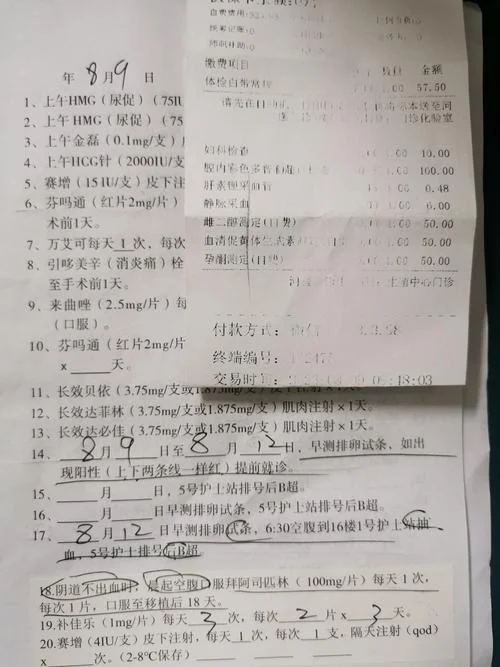 年 8 月 9 日
1、上午HMG（尿促）（75IU
2、上午 HMG（尿促）（75
3、上午金磊（0.1mg/支）
4、上午HCG针（2000IU/支）
5、赛增（15 IU/支）皮下注
6、芬吗通（红片2mg/片）
术前1天。
7、万艾可每天 1 次，每次
8、引哚美辛（消炎痛）栓
至手术前1天。
9、来曲唑（2.5mg/片）每
（口服）。
10、芬吗通（红片2mg/片
x 天。
缴费项目 数但 金额
体检白带常规 1.00 57.50
妇科检查 1.00 10.00
腔内彩色多普勒超 1.00 100.00
肝素锂采血管 1.00 0.48
静脉采血 1.00 6.00
雌二醇测定(自费) 1.00 50.00
血清促黄体生成素 1.00 50.00
孕酮测定(自费) 1.00 50.00
付款方式：微信
终端编号：
交易时间： 48:03
11、长效贝依（3.75mg/支或1.875mg/支）皮下注射×1天。
12、长效达菲林（3.75mg/支或1.875mg/支）肌肉注射×1天。
13、长效达必佳（3.75mg/支或1.875mg/支）肌肉注射×1天。
14、 8 月 9 日至 8 月 12 日，早测排卵试条，如出
现阳性（上下两条线一样红）提前就诊。
15、 月 日，5号护士站排号后B超。
16、 月 日早测排卵试条，5号护士站排号后B超。
17、 8 月 12 日早测排卵试条，6:30空腹到16楼1号护士站抽
血，5号护士排号后B超。
18.阴道不出血时，晨起空腹口服拜阿司匹林（100mg/片）每天 1 次，
每次 1 片，口服至移植后 18 天。
19.补佳乐（1mg/片）每天 3 次，每次 2 片 x 3 天。
20.赛增（4IU/支）皮下注射，每天 1 次，每次 1 支，隔天注射（qod）
x 次。（2-8℃保存）